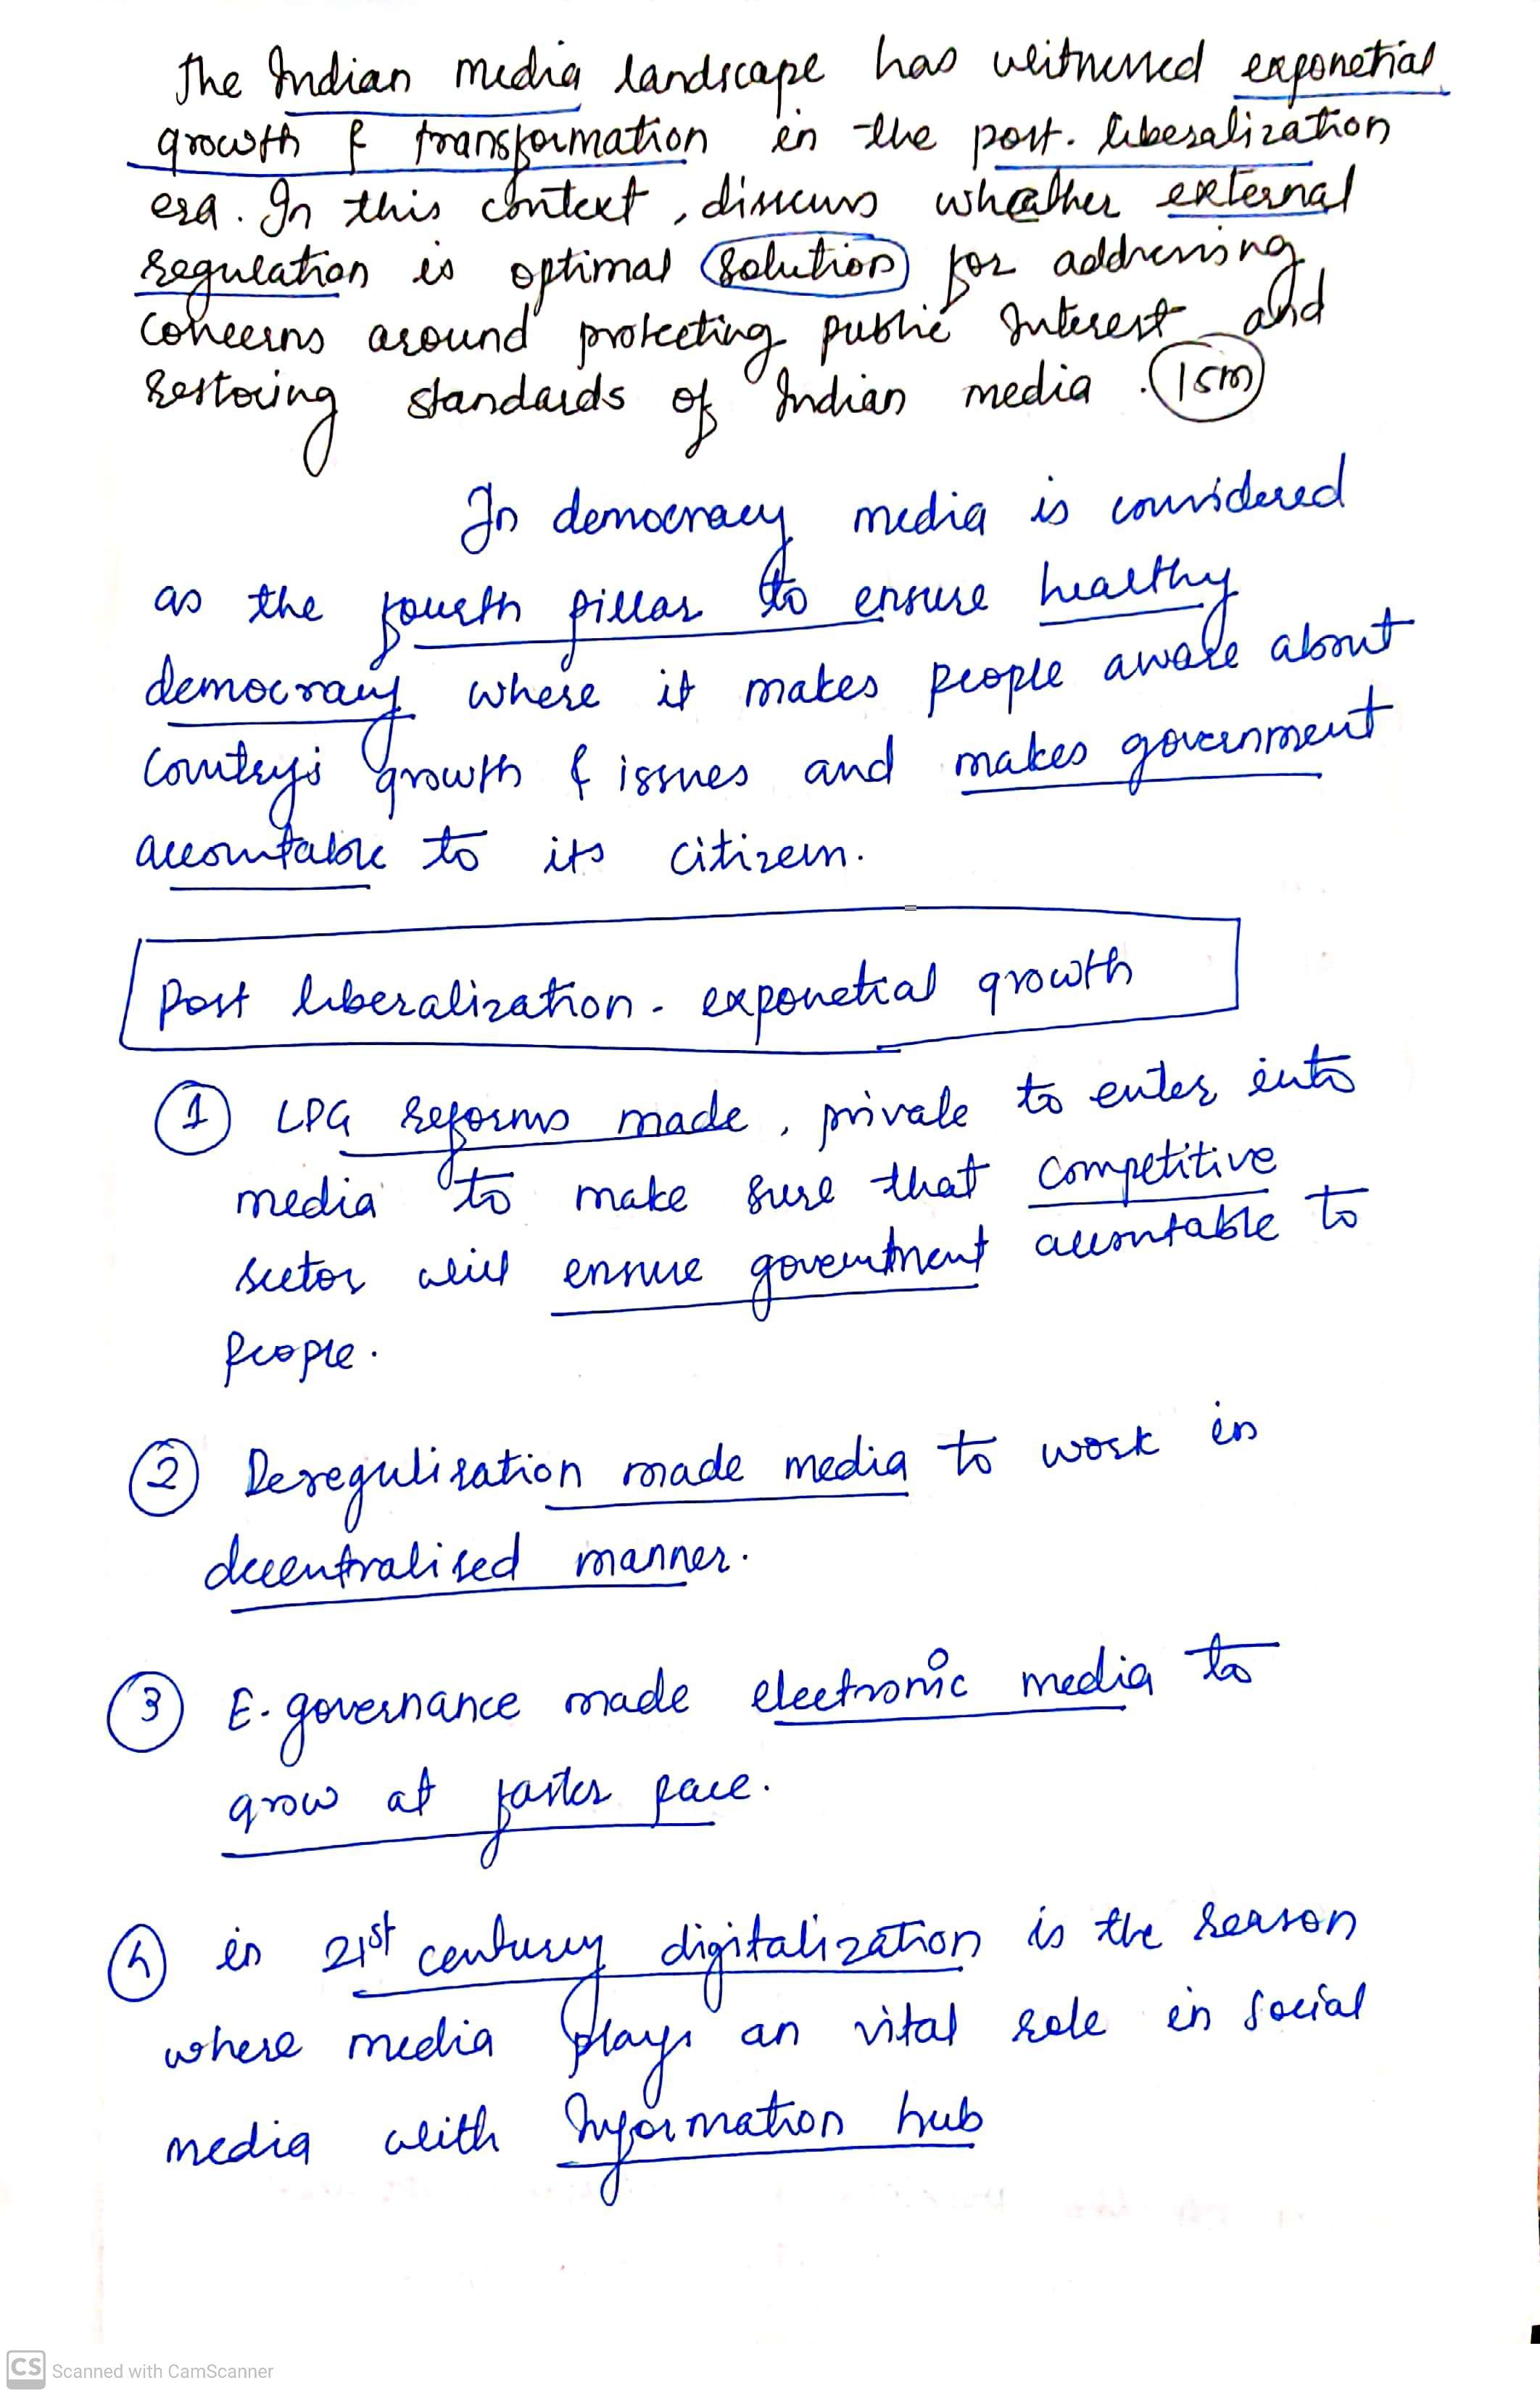 The Indian media landscape has witnessed exponetial
growth & transformation in the post. liberalization
era. In this context, discuss wheather external
regulation is optimal solution for addressing
concerns around protecting public Interest and
restoring standards of Indian media. 15m
In democracy media is considered
as the fourth pillar to ensure healthy
democracy where it makes people aware about
Country's growth & issues and makes government
accountable to its citizen.
Post liberalization - exponetial growth
1 LPG reforms made, private to enter into
media to make sure that competitive
sector will ensure government accountable to
people.
2 Deregulisation made media to work in
decentralised manner.
3 E-governance made electronic media to
grow at faster pace.
4 in 21st century digitalization is the reason
where media plays an vital role in social
media with Information hub
CS Scanned with CamScanner